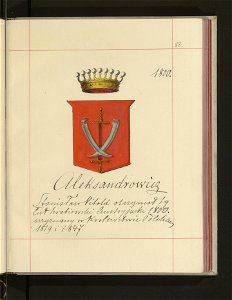 85.
1800.
Aleksandrowicz
Stanisław Witold otrzymał ty
tuł hrabiowski Austryjacki 1800.
przyznany w Królestwie Polskiem
1819 i 1847.